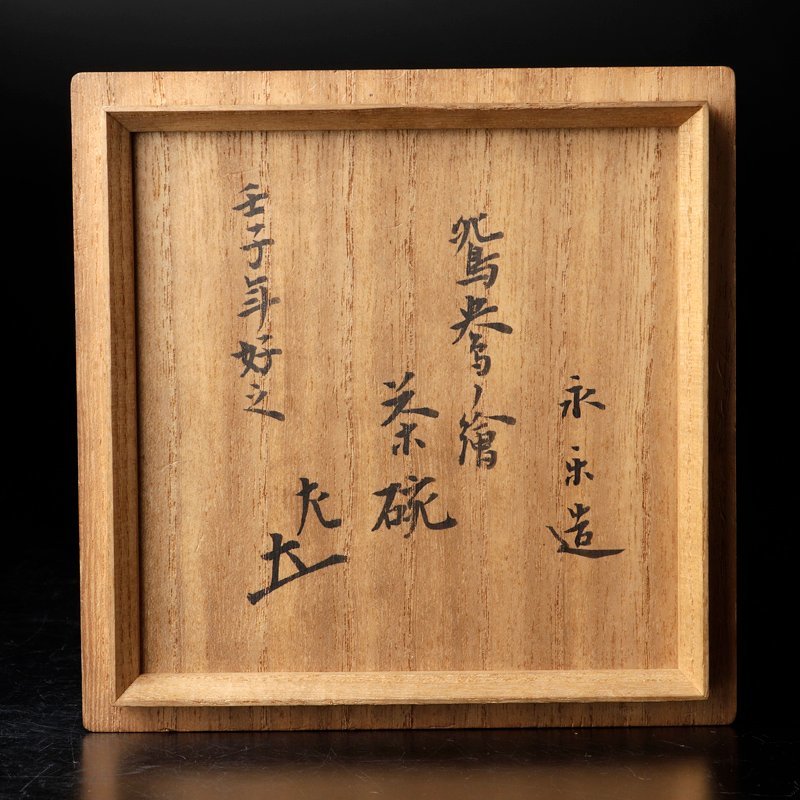 永樂造
鴛鴦ノ繪
茶碗
壬子年好之